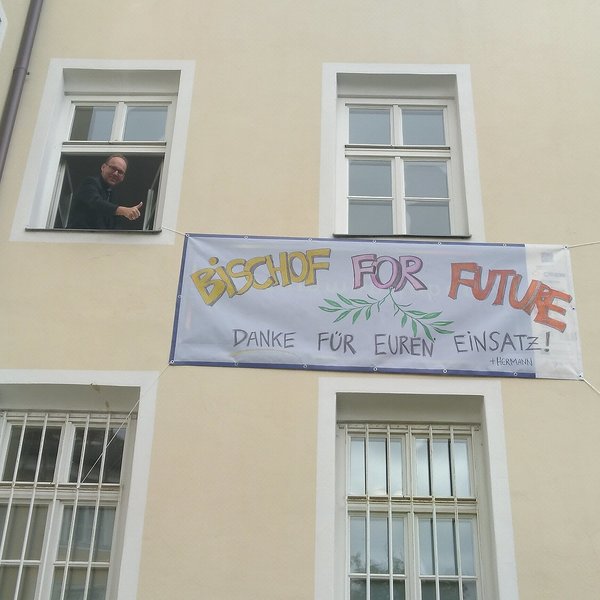 BISCHOF FOR FUTURE
DANKE FÜR EUREN EINSATZ!
+HERMANN